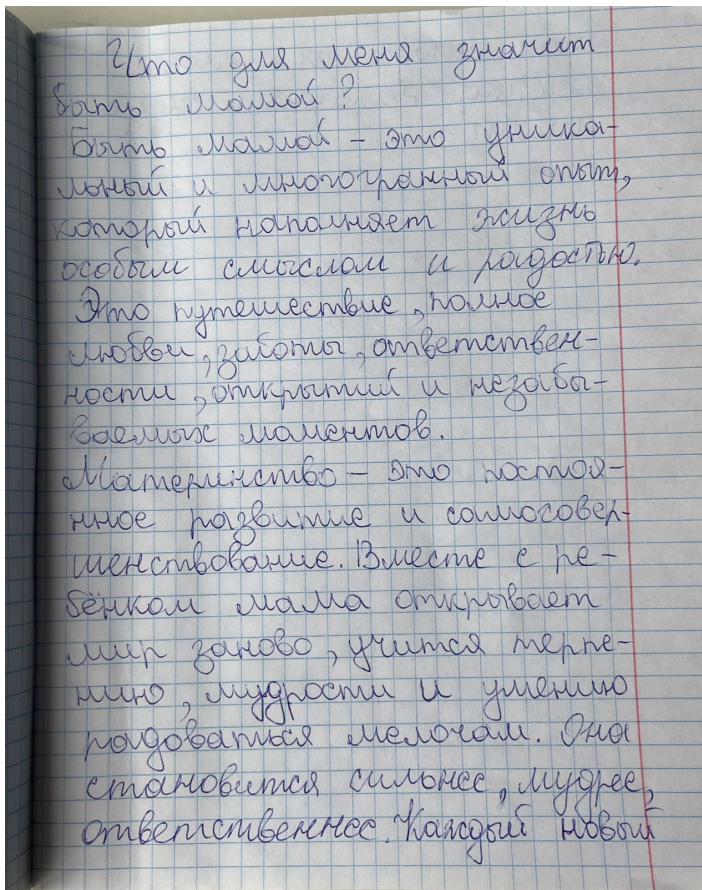 Что для меня значит
быть мамой?
Быть мамой – это уника-
льный и многогранный опыт,
который наполняет жизнь
особым смыслом и радостью.
Это путешествие, полное
любви, заботы, ответствен-
ности, открытий и незабы-
ваемых моментов.
Материнство – это постоя-
нное развитие и самосовер-
шенствование. Вместе с ре-
бёнком мама открывает
мир заново, учится терпе-
нию, мудрости и умению
радоваться мелочам. Она
становится сильнее, мудрее,
ответственнее. Каждый новый